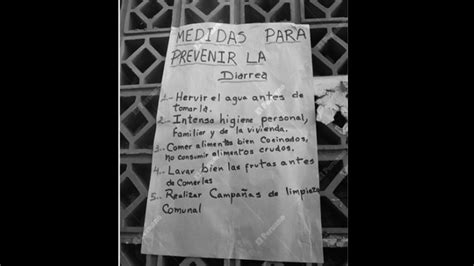 MEDIDAS PARA
PREVENIR LA
Diarrea
1.- Hervir el agua antes de
tomarla.
2.- Intensa higiene personal,
familiar y de la vivienda.
3.. Comer alimentos bien Cocinados,
no consumir alimentos crudos.
4.. Lavar bien las frutas antes
de Comerlas
5.. Realizar Campañas de limpieza
Comunal